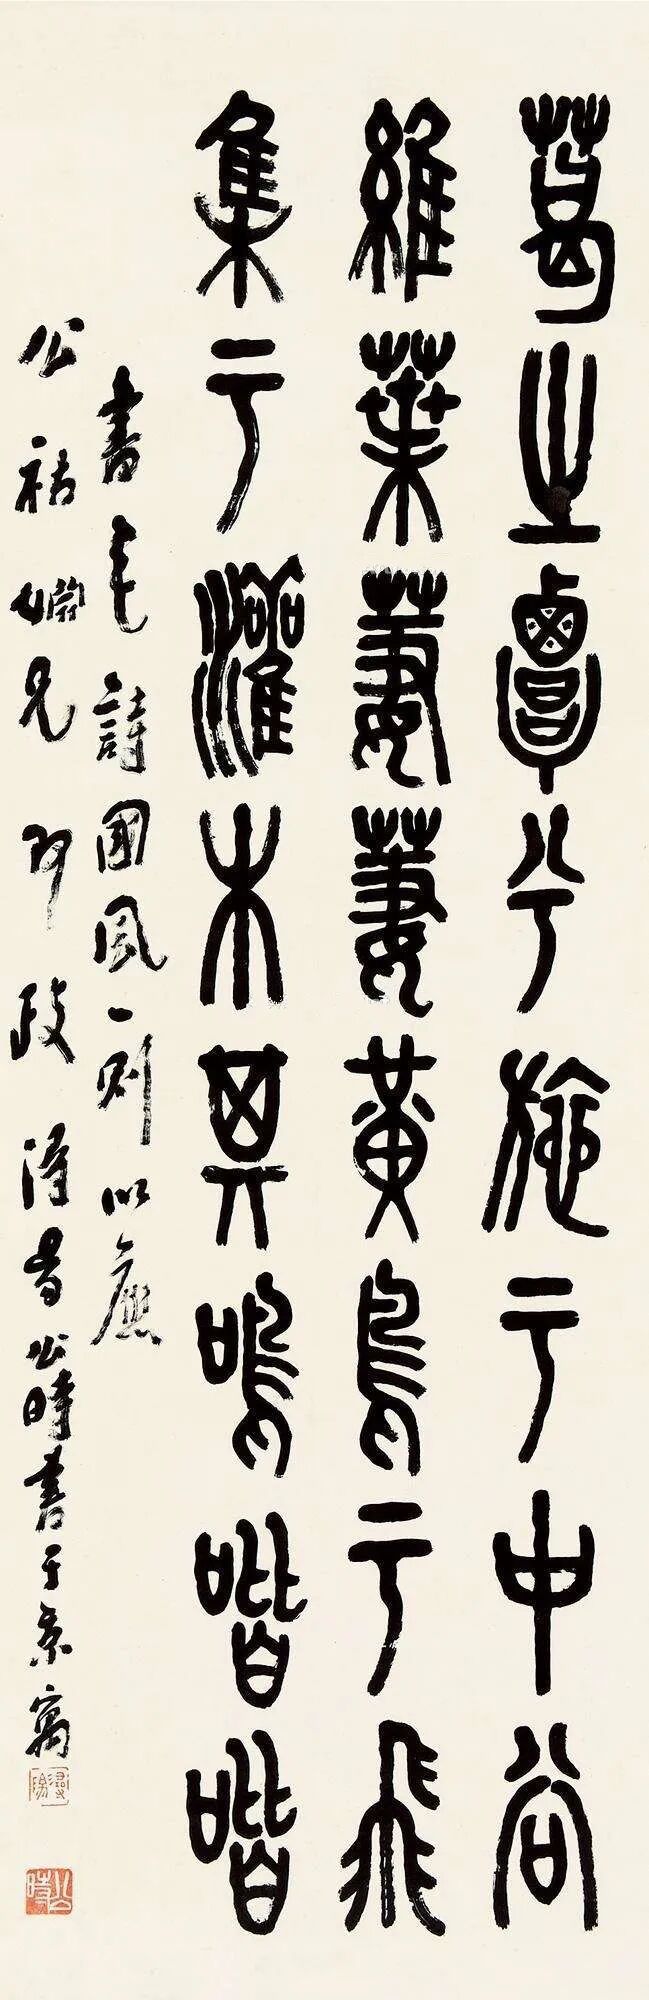 葛之覃兮施于中谷
維葉萋萋黃鳥于飛
集于灌木其鳴喈喈
書毛詩國風一則以應
公祜姻兄 政 公時書于京寓
公時